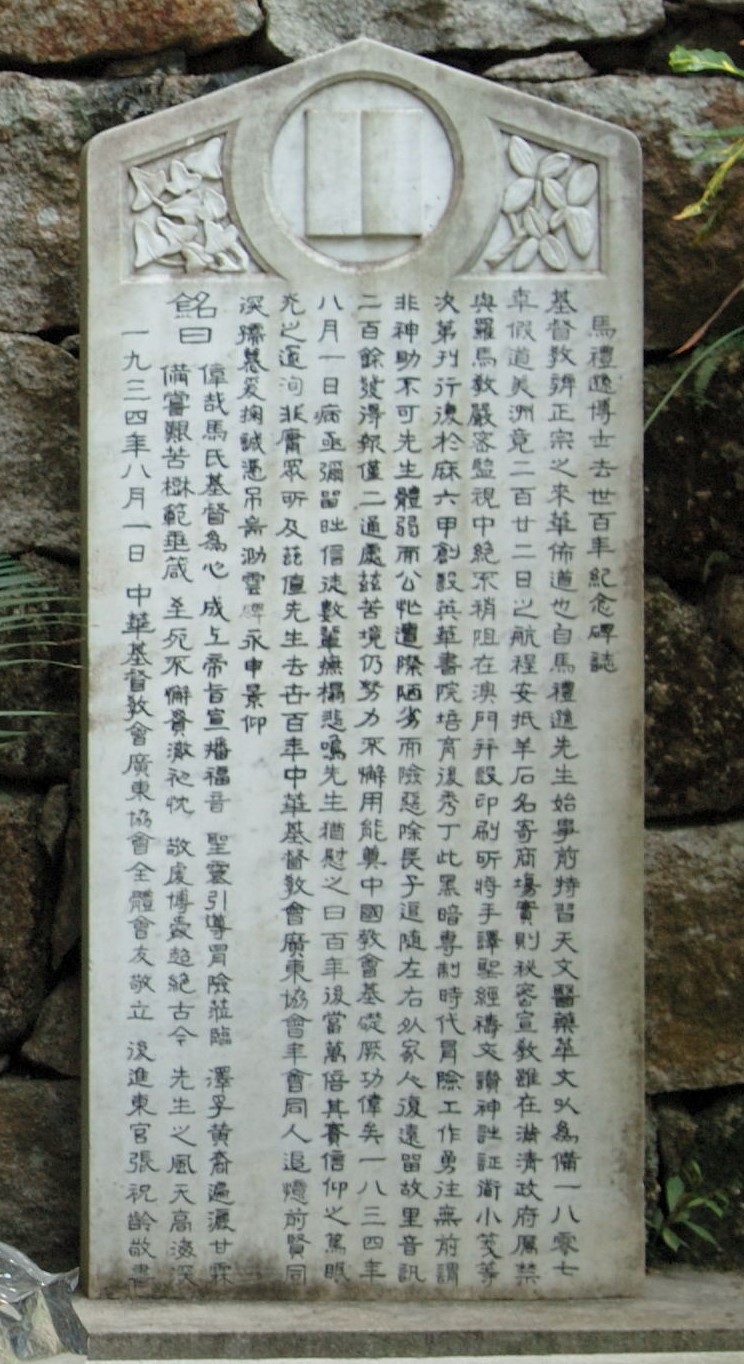 馬禮遜博士去世百年紀念碑誌
基督教辨正宗之來華佈道也自馬禮遜先生始事前特習天文醫藥華文以為備一八零七
年假道美洲竟二百廿二日之航程安抵羊石名寄商場實則秘密宣教雖在滿清政府厲禁
與羅馬教嚴密監視中絕不稍阻在澳門并設印刷所將手譯聖經禱文讚神詩証衛小箋等
次第刊行復於麻六甲創設英華書院培育後秀丁此黑暗專制時代冒險工作勇往無前謂
非神助不可先生體弱而公忙遭際陋劣而險惡除長子追隨左右外家人復遠留故里音訊
二百餘發得報僅二通處茲苦境仍努力不懈用能奠中國教會基礎厥功偉矣一八三四年
八月一日病亟彌留時信徒數輩撫榻悲鳴先生猶慰之曰百年後當萬倍其賽信仰之篤眼
光之遠洵非庸眾所及茲值先生去世百年中華基督教會廣東協會年會同人追懷前賢同
深孺慕爰掬誠憑弔並泐雲碑永申景仰
銘曰
偉哉馬氏基督為心 成上帝旨宣播福音 聖靈引導冒險蒞臨 澤孚黃裔遍灑甘霖
備嘗艱苦樹範垂箴 至死不懈貫澈祂忱 敬虔博愛超絕古今 先生之風天高海深
一九三四年八月一日 中華基督教會廣東協會全體會友敬立 後進東官張祝齡敬書